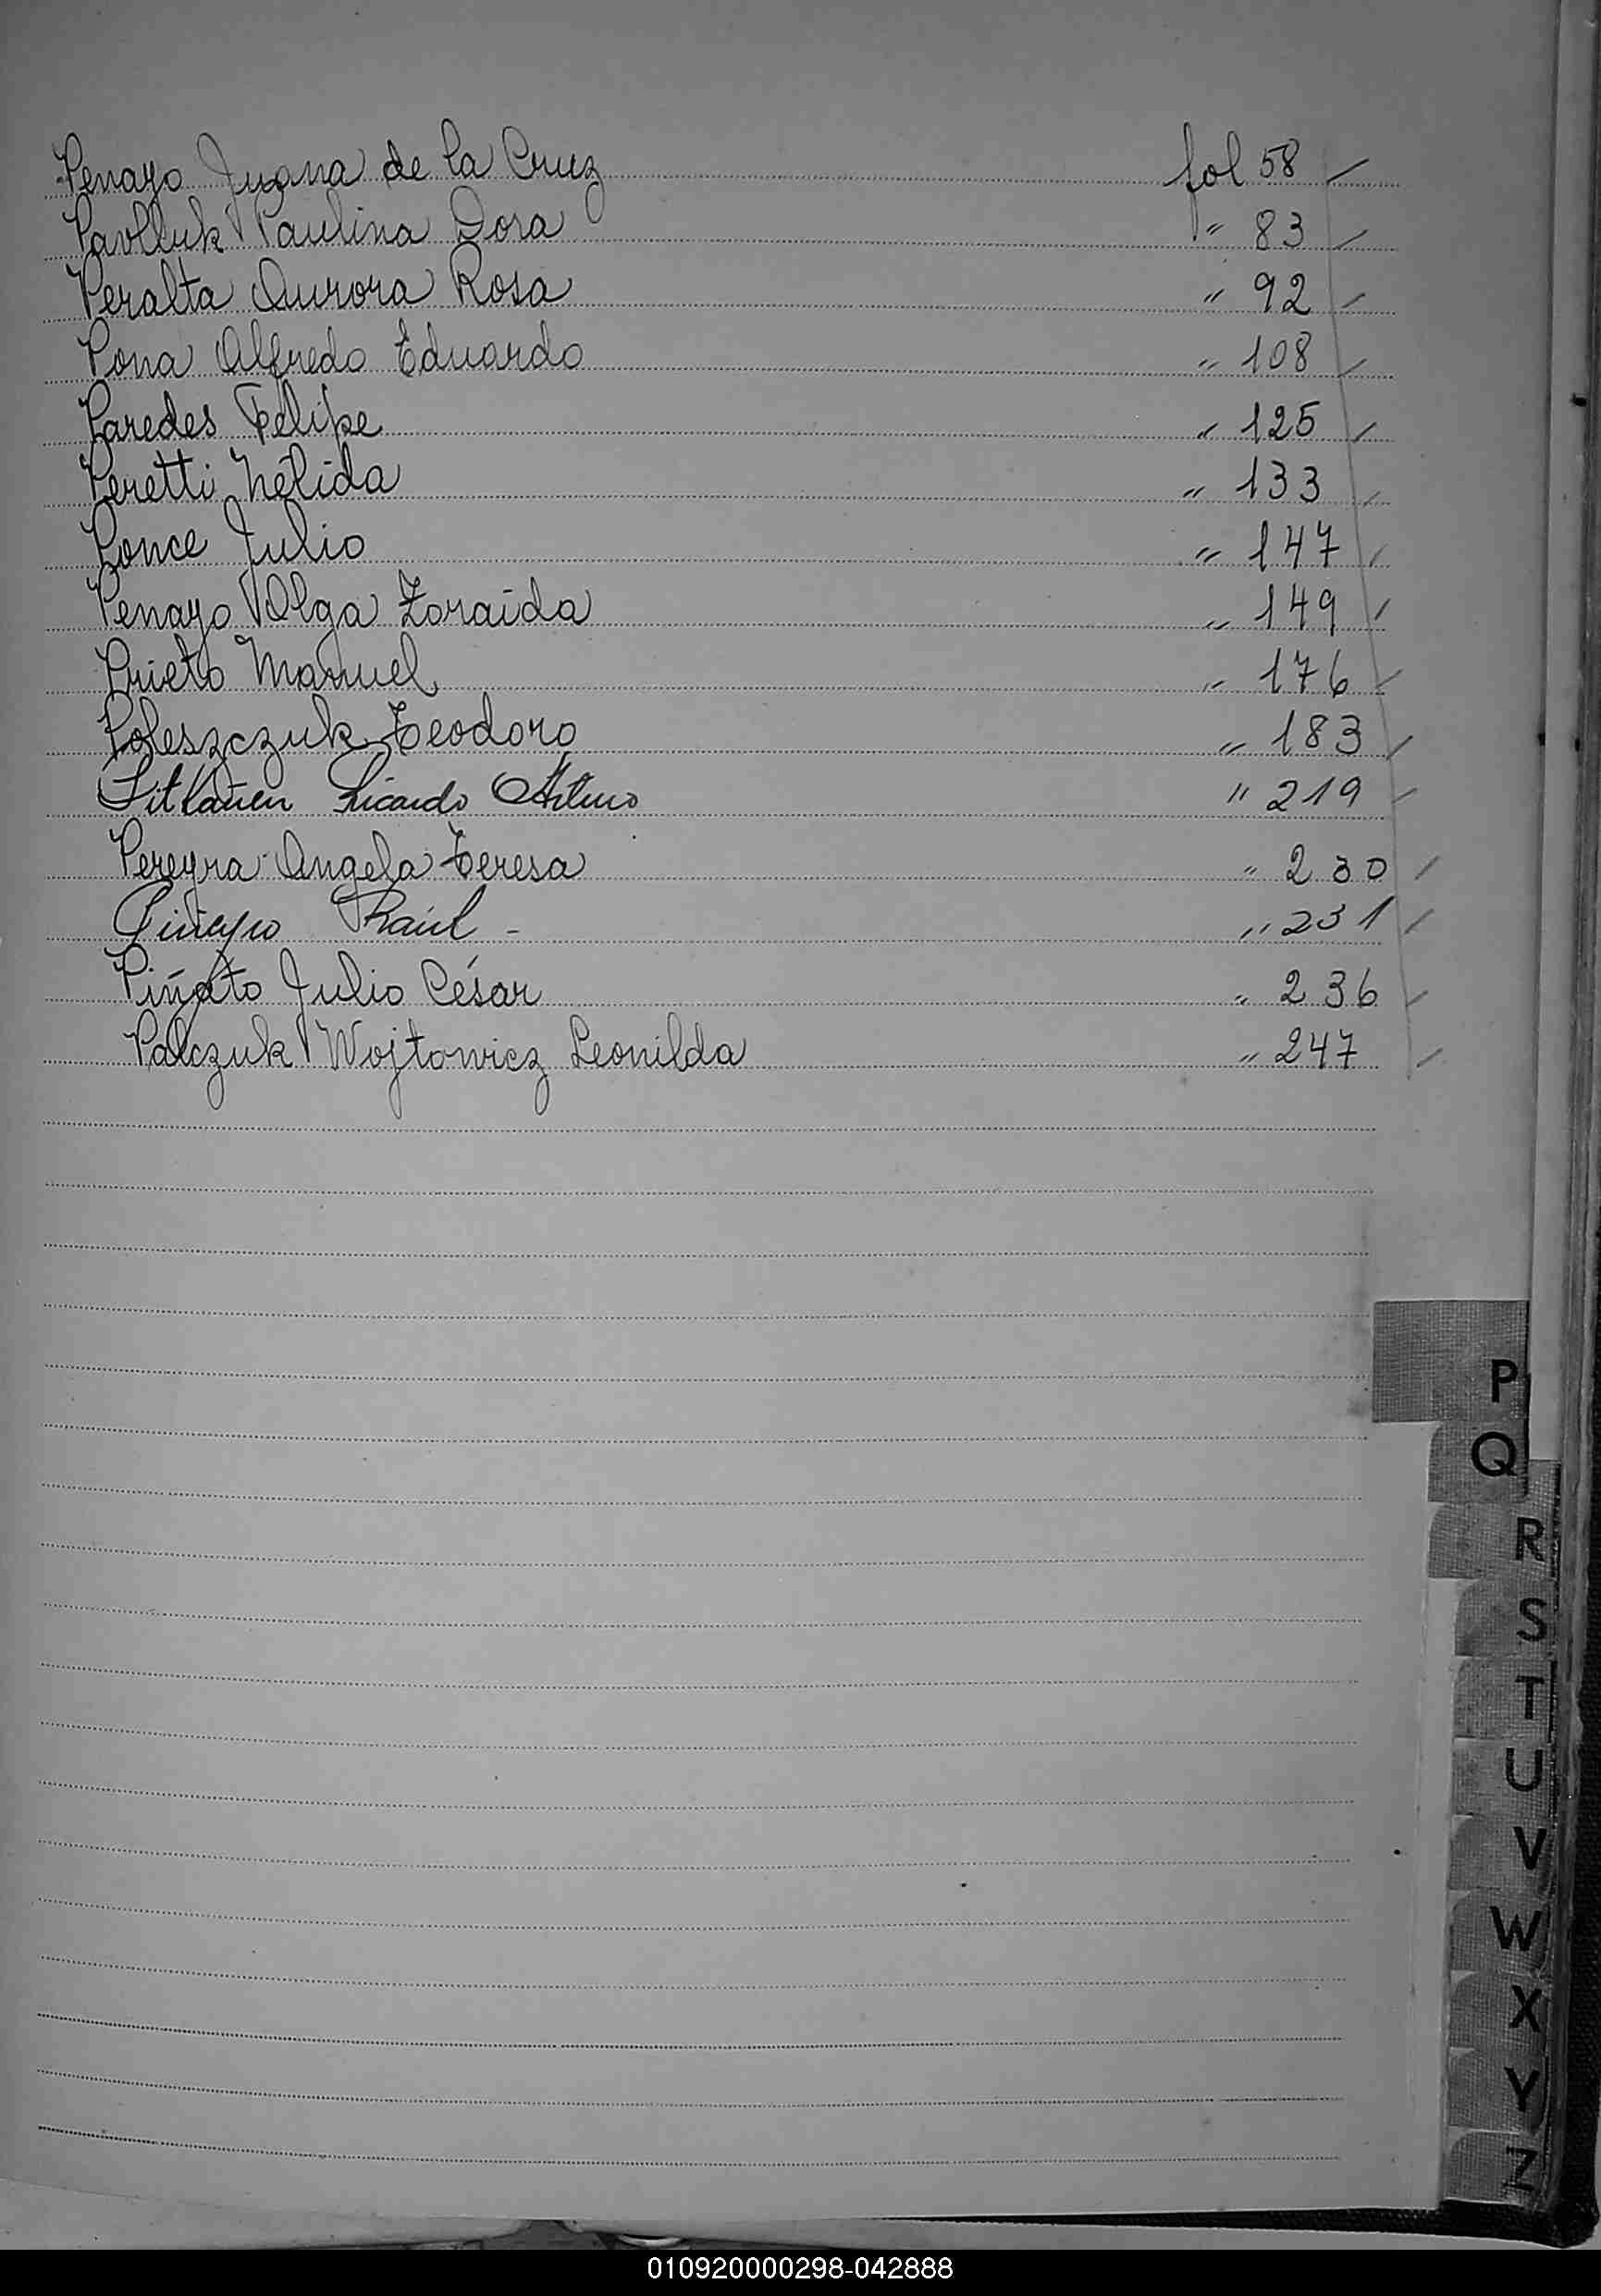 Penayo Juana de la Cruz fol 58
Pavlluk Paulina Dora " 83
Peralta Aurora Rosa " 92
Pona Alfredo Eduardo " 108
Paredes Felipe " 125
Peretti Nélida " 133
Ponce Julio " 147
Penayo Olga Zoraida " 149
Prieto Manuel " 176
Poleszczuk Teodoro " 183
Ricardo Arturo " 219
Pereyra Angela Teresa " 230
Raúl - " 231
Piñato Julio César " 236
Palczuk Wojtowicz Leonilda " 247
P
Q
R
S
T
U
V
W
X
Y
Z
010920000298-042888